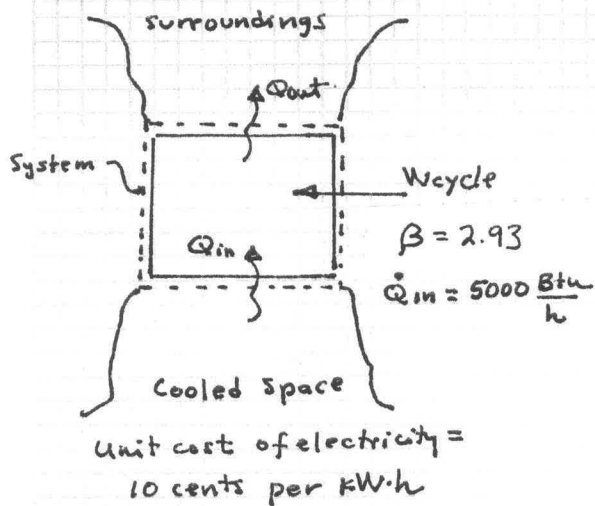 surroundings
Qout
System
Wcycle
Qin
β = 2.93
Q̇in = 5000 Btu/h
Cooled Space
Unit cost of electricity =
10 cents per kW·h